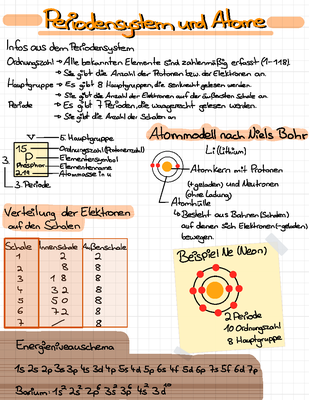 Periodensystem und Atome
Infos aus dem Periodensystem
Ordnungszahl → Alle bekannten Elemente sind zahlenmäßig erfasst (1-118).
↳ Sie gibt die Anzahl der Protonen bzw. der Elektronen an.
Hauptgruppe → Es gibt 8 Hauptgruppen, die senkrecht gelesen werden.
↳ Sie gibt die Anzahl der Elektronen auf der äußersten Schale an.
Periode → Es gibt 7 Perioden, die waagerecht gelesen werden.
↳ Sie gibt die Anzahl der Schalen an
V → 5. Hauptgruppe
15 → Ordnungszahl (Protonenzahl)
3. P → Elementersymbol
Phosphor → Elementername
Atommasse in u
3. Periode
Atommodell nach Niels Bohr
Li (Lithium)
Atomkern mit Protonen
(+geladen) und Neutronen
(ohne Ladung)
Atomhülle
↳ Besteht aus Bahnen (Schalen)
auf denen sich Elektronen (-geladen)
bewegen.
Verteilung der Elektronen
auf den Schalen
Schale Innenschale Außenschale
1 2 2
2 8 8
3 18 8
4 32 8
5 50 8
6 72 8
7 / 8
Beispiel Ne (Neon)
2 Periode
10 Ordnungszahl
8 Hauptgruppe
Energieniveauschema
1s 2s 2p 3s 3p 4s 3d 4p 5s 4d 5p 6s 4f 5d 6p 7s 5f 6d 7p
Barium: 1s² 2s² 2p⁶ 3s² 3p⁶ 4s² 3d¹⁰